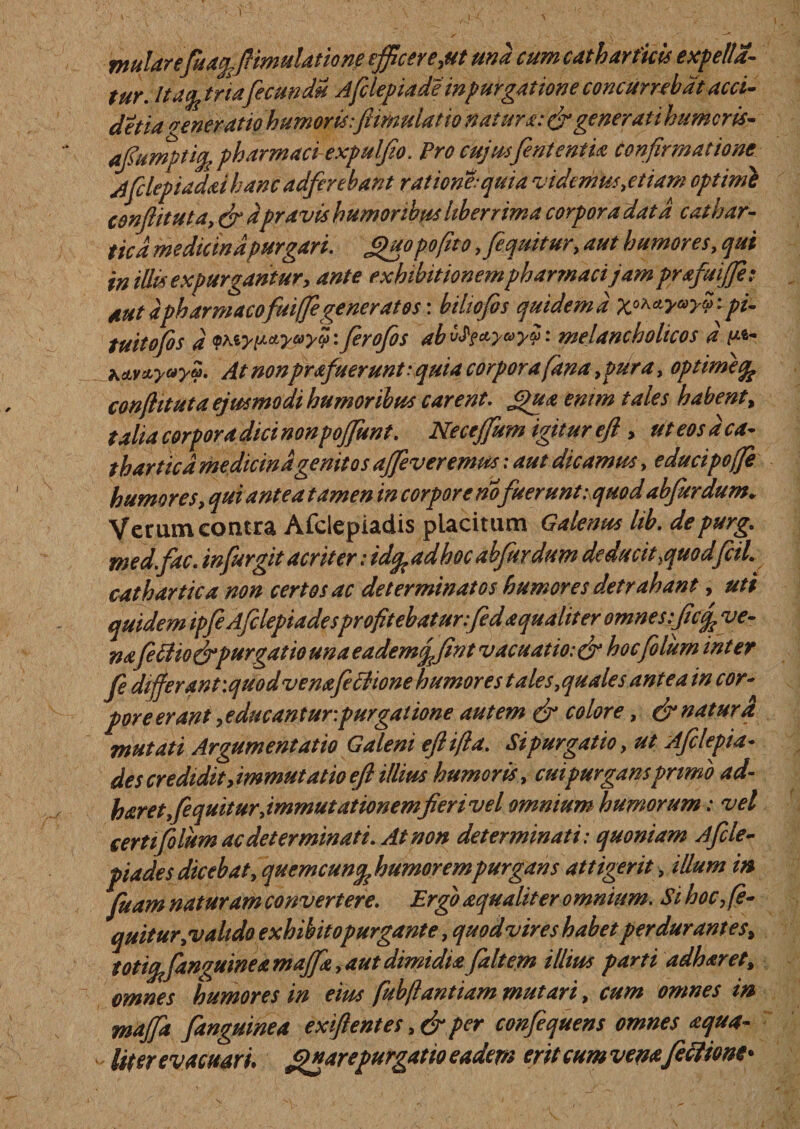 mulare suaq́ stimulatione efficere, ut unà cum catharticis expellã-
tur. Itaq́ tria secundũ Asclepiadẽ in purgatione concurrebãt acci-
dẽtia generatio humoris: stimulatio naturæ: & generati humoris-
assumptiq́ pharmaci expulsio. Pro cujus sententiæ confirmatione
Asclepiadæi hanc adferebant rationẽ: quia videmus, etiam optimè
constituta, & à pravis humoribus liberrima corpora datâ cathar-
ticâ medicinâ purgari. Quo posito, sequitur, aut humores, qui
in illis expurgantur, ante exhibitionem pharmaci jam præfuisse:
aut à pharmaco fuisse generatos: biliosos quidem à χολαγωγῷ: pi-
tuitosos à φλεγμαγωγῷ: serosos ab ὑδραγωγῷ: melancholicos à με-
λαναγωγῷ. At non præfuerunt: quia corpora sana, pura, optimeq́
constituta ejusmodi humoribus carent. Quæ enim tales habent,
talia corpora dici non possunt. Necessum igitur est, ut eos à ca-
tharticâ medicinâ genitos asseveremus: aut dicamus, educi posse
humores, qui antea tamen in corpore nõ fuerunt: quod absurdum.
Verum contra Asclepiadis placitum Galenus lib. de purg.
med. fac. insurgit acriter: idq́ ad hoc absurdum deducit, quod scil.
cathartica non certos ac determinatos humores detrahant, uti
quidem ipse Asclepiades profitebatur: sed æqualiter omnes: sicq́ ve-
næ sectio & purgatio una eademq́ sint vacuatio: & hoc solùm inter
se differant: quod venæ sectione humores tales, quales antea in cor-
pore erant, educantur: purgatione autem & colore, & naturâ
mutati Argumentatio Galeni est ista. Si purgatio, ut Asclepia-
des credidit, immutatio est illius humoris, cui purgans primò ad-
hæret, sequitur, immutationem fieri vel omnium humorum: vel
certi solùm ac determinati. At non determinati: quoniam Ascle-
piades dicebat, quemcunq́ humorem purgans attigerit, illum in
suam naturam convertere. Ergò æqualiter omnium. Si hoc, se-
quitur, valido exhibito purgante, quod vires habet perdurantes,
totiq́ sanguineæ massæ, aut dimidiæ saltem illius parti adhæret,
omnes humores in eius substantiam mutari, cum omnes in
massa sanguinea existentes, & per consequens omnes æqua-
liter evacuari. Quare purgatio eadem erit cum venæ sectione.